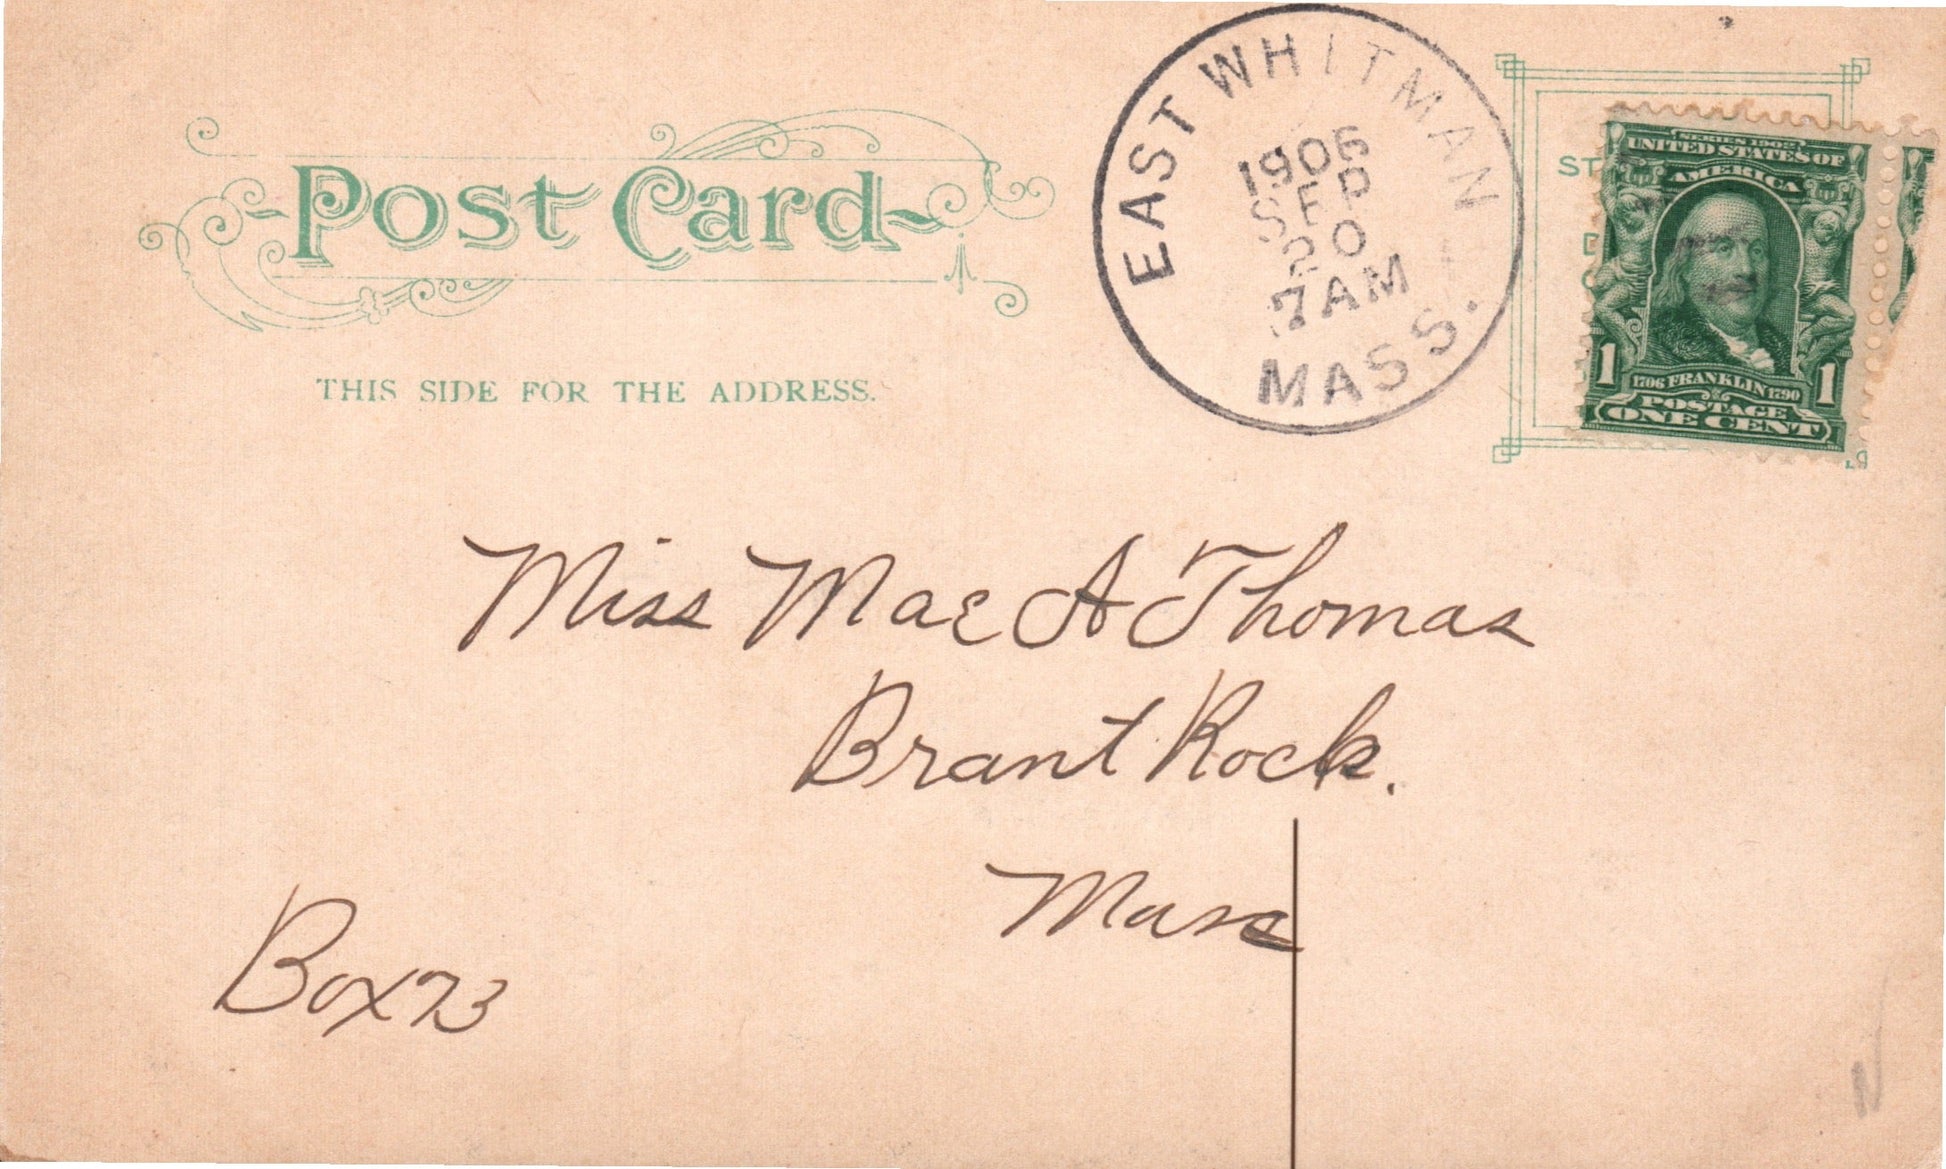 Post Card
THIS SIDE FOR THE ADDRESS.
EAST WHITMAN
1906
SEP
20
7 AM
MASS.
ST
SERIES 1902
UNITED STATES OF
AMERICA
1 1
1706 FRANKLIN 1790
POSTAGE
ONE CENT
Miss Mae A Thomas
Brant Rock.
Mass
Box 73